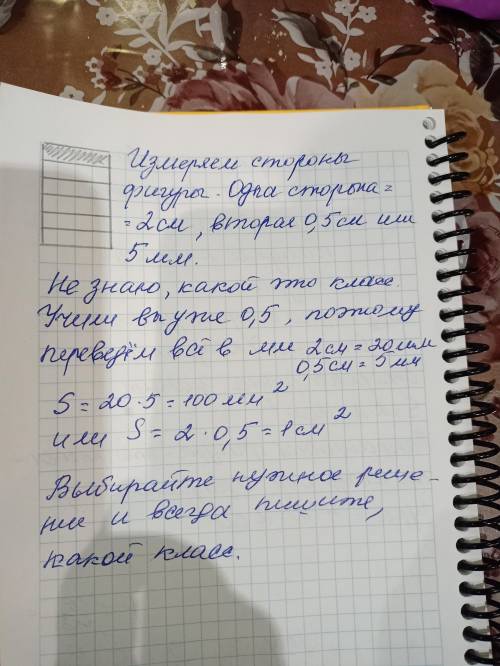 Измеряем стороны
фигуры. Одна сторона=
=2см, вторая 0,5см или
5мм.
Не знаю, какой это класс.
Учили вы уже 0,5, поэтому
переведём всё в мм 2см=20мм
0,5см=5мм
S=20·5=100мм²
или S=2·0,5=1см²
Выбирайте нужное реше-
ние и всегда пишите,
какой класс.